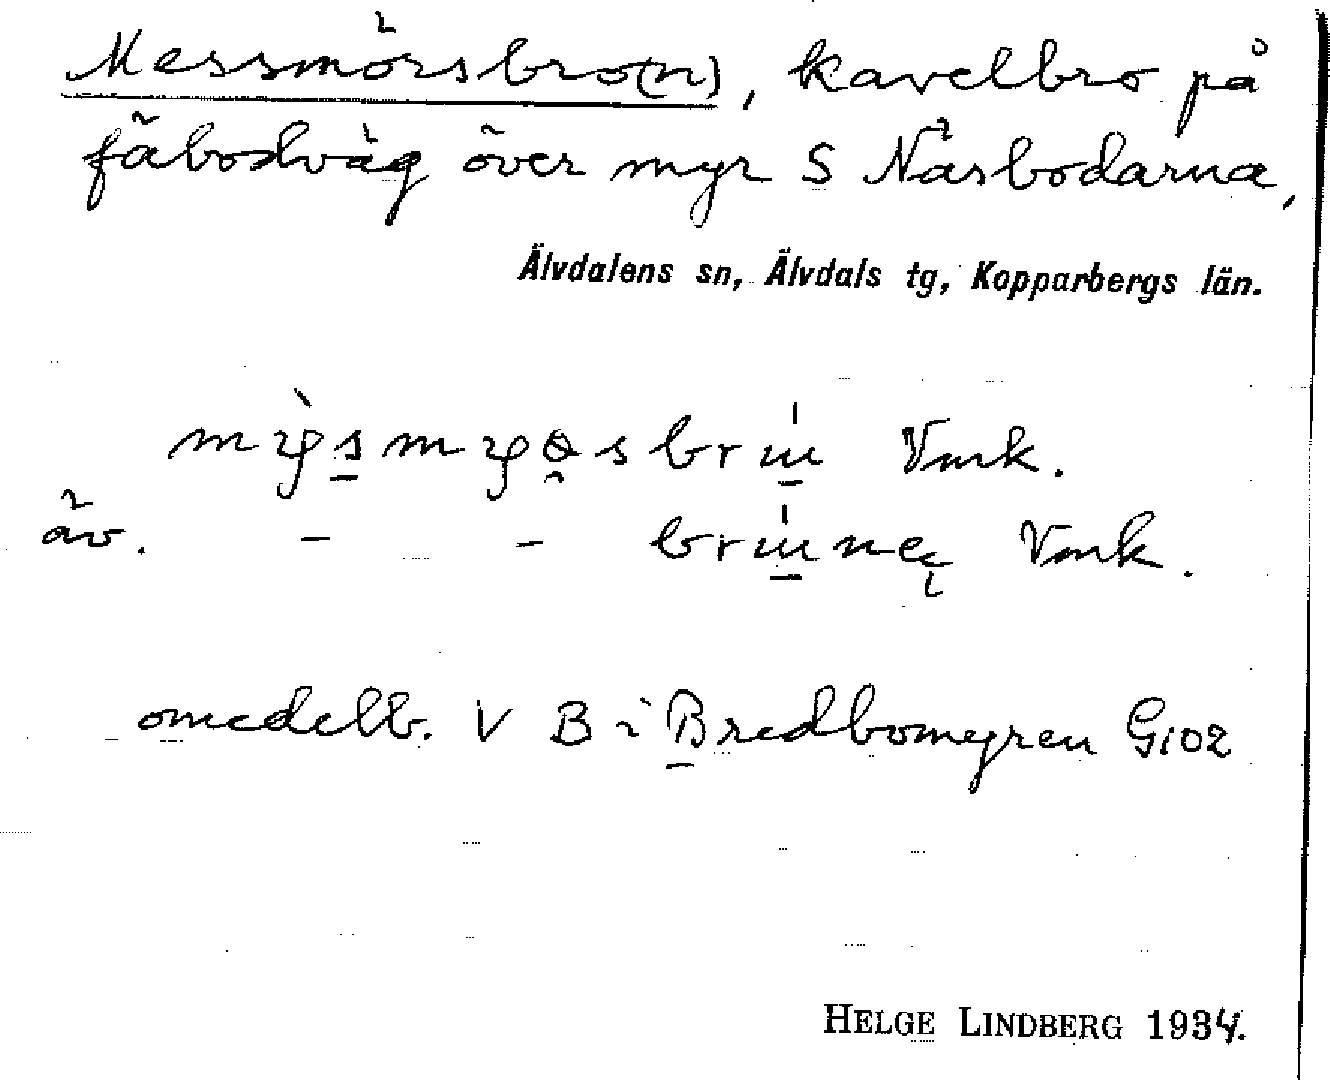 Messmörsbro(n), kavelbro på
fäbodväg över myr S Näsbodarna,
Älvdalens sn, Älvdals tg, Kopparbergs län.
Vmk.
äv. - - Vmk.
omedelb. V B i Bredbomyren G102
HELGE LINDBERG 1934.